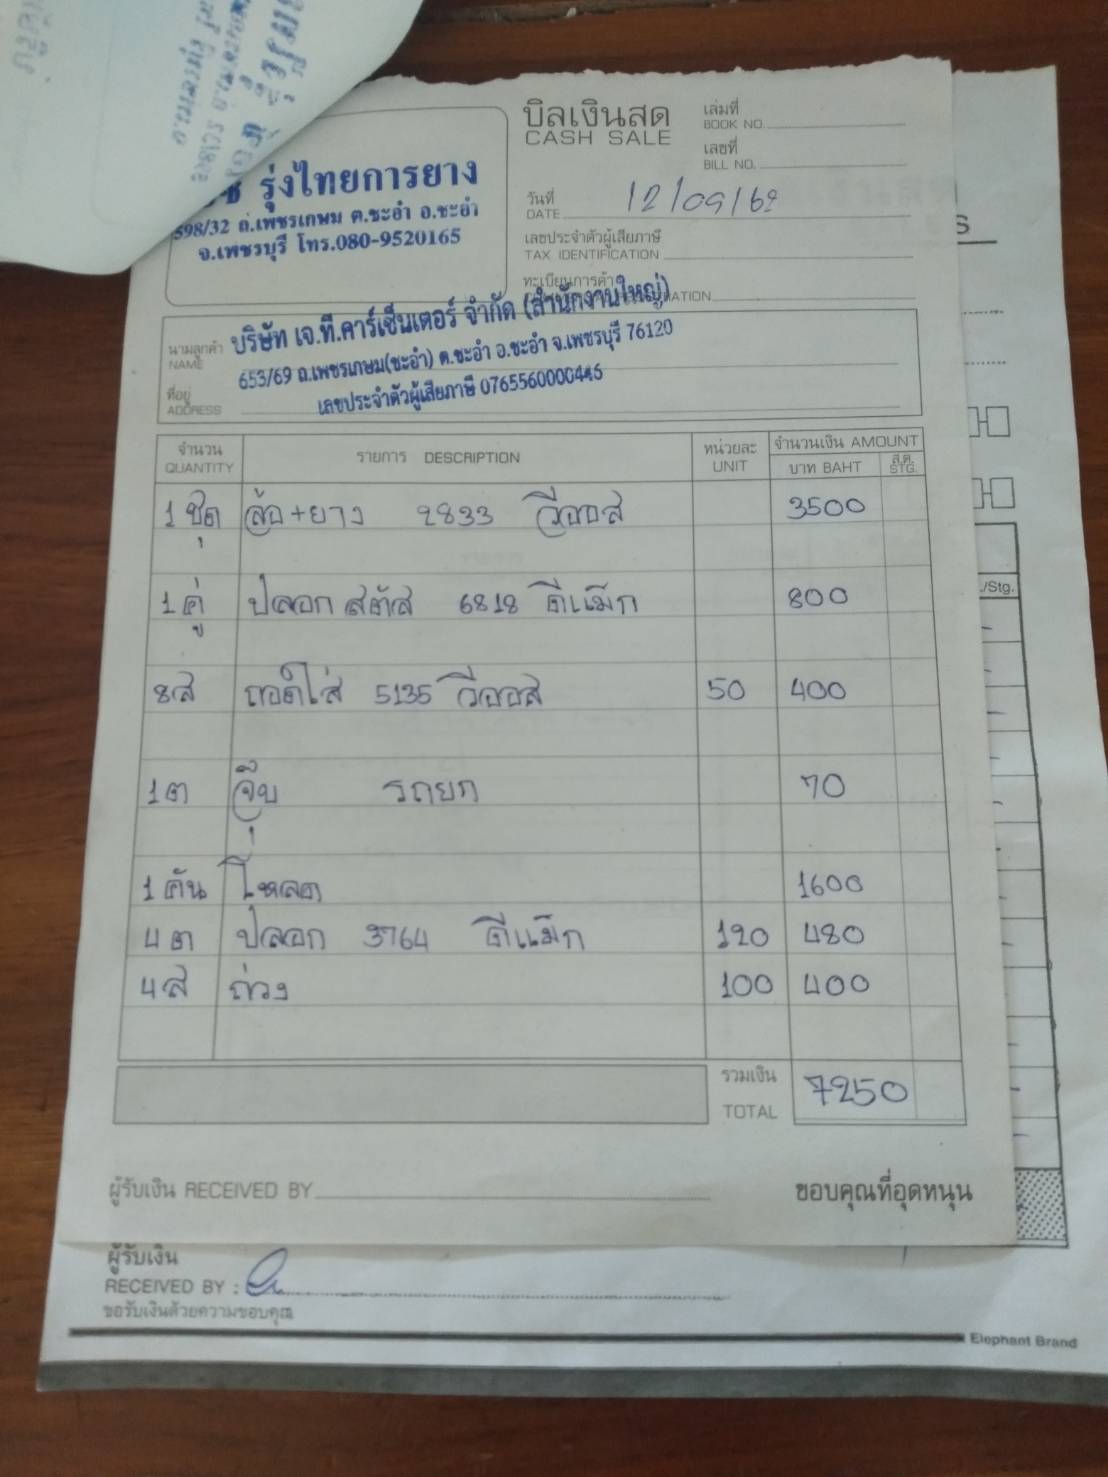 บิลเงินสด
CASH SALE
เล่มที่
BOOK NO.
เลขที่
BILL NO.
รุ่งไทยการยาง
598/32 ถ.เพชรเกษม ต.ชะอำ อ.ชะอำ
จ.เพชรบุรี โทร.080-9520165
วันที่
DATE 12/09/62
เลขประจำตัวผู้เสียภาษี
TAX IDENTIFICATION
ทะเบียนการค้า
นามลูกค้า
NAME
บริษัท เจ.ที.คาร์เซ็นเตอร์ จำกัด (สำนักงานใหญ่)
653/69 ถ.เพชรเกษม(ชะอำ) ต.ชะอำ อ.ชะอำ จ.เพชรบุรี 76120
เลขประจำตัวผู้เสียภาษี 0765560000446
ที่อยู่
ADDRESS
จำนวน QUANTITY รายการ DESCRIPTION หน่วยละ UNIT จำนวนเงิน AMOUNT
บาท BAHT ส.ต. STG.
1 ชุด ล้อ+ยาง 2833 วีออส 3500
1 คู่ ปลอก สตัส 6818 ดีแม็ก 800
8ส ถอดใส่ 5135 วีออส 50 400
1ต จุ๊บ รถยก 70
1 คัน โหลด 1600
4ต ปลอก 3764 ดีแม็ก 120 480
4ส ถ่วง 100 400
รวมเงิน
TOTAL 7250
ผู้รับเงิน RECEIVED BY
ขอบคุณที่อุดหนุน
ผู้รับเงิน
RECEIVED BY :
ขอรับเงินด้วยความขอบคุณ
Elephant Brand
./Stg.
S